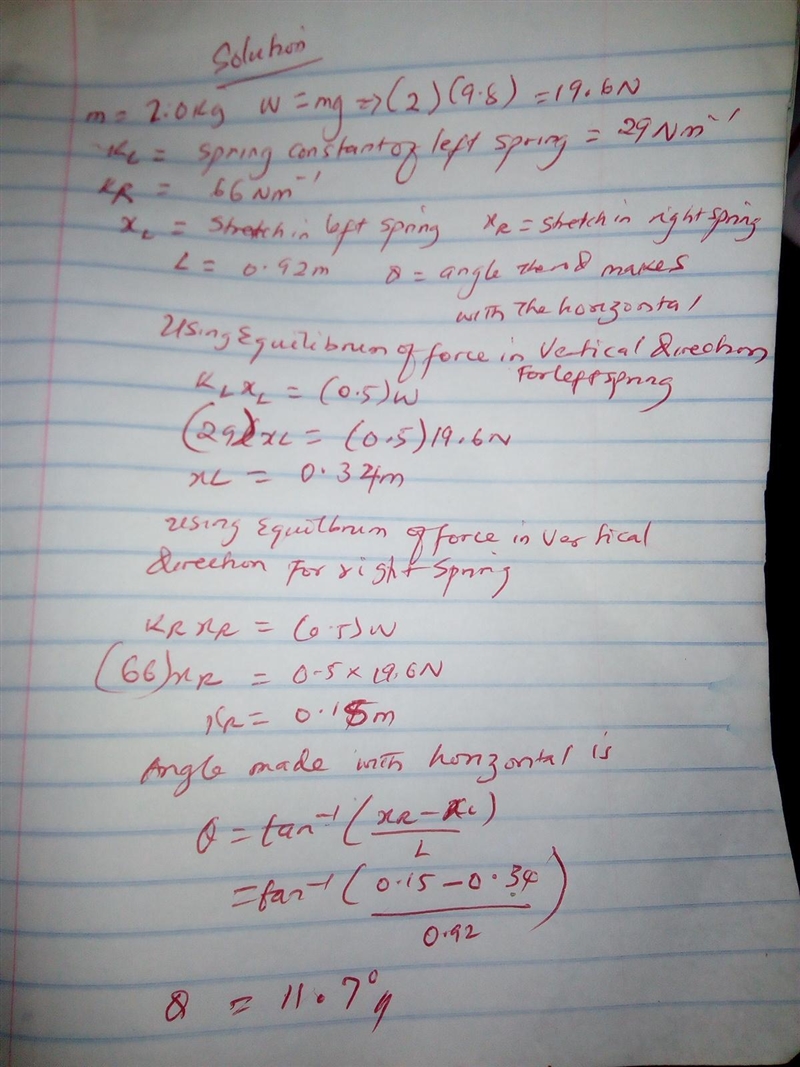 Solution
m = 2.0kg W = mg => (2)(9.8) = 19.6N
KL = spring constant of left spring = 29Nm⁻¹
KR = 66Nm⁻¹
xL = Stretch in left spring xR = Stretch in right spring
L = 0.92m θ = angle the rod makes
with the horizontal
Using Equilibrum of force in Vertical direction
For left spring
KL xL = (0.5)W
(29)xL = (0.5)19.6N
xL = 0.34m
Using Equilbrum of force in Vertical
direction For right Spring
KR xR = (0.5)W
(66)xR = 0.5 × 19.6N
xR = 0.15m
Angle made with horizontal is
θ = tan⁻¹ (xR - xL / L)
= tan⁻¹ (0.15 - 0.34 / 0.92)
θ = 11.7°